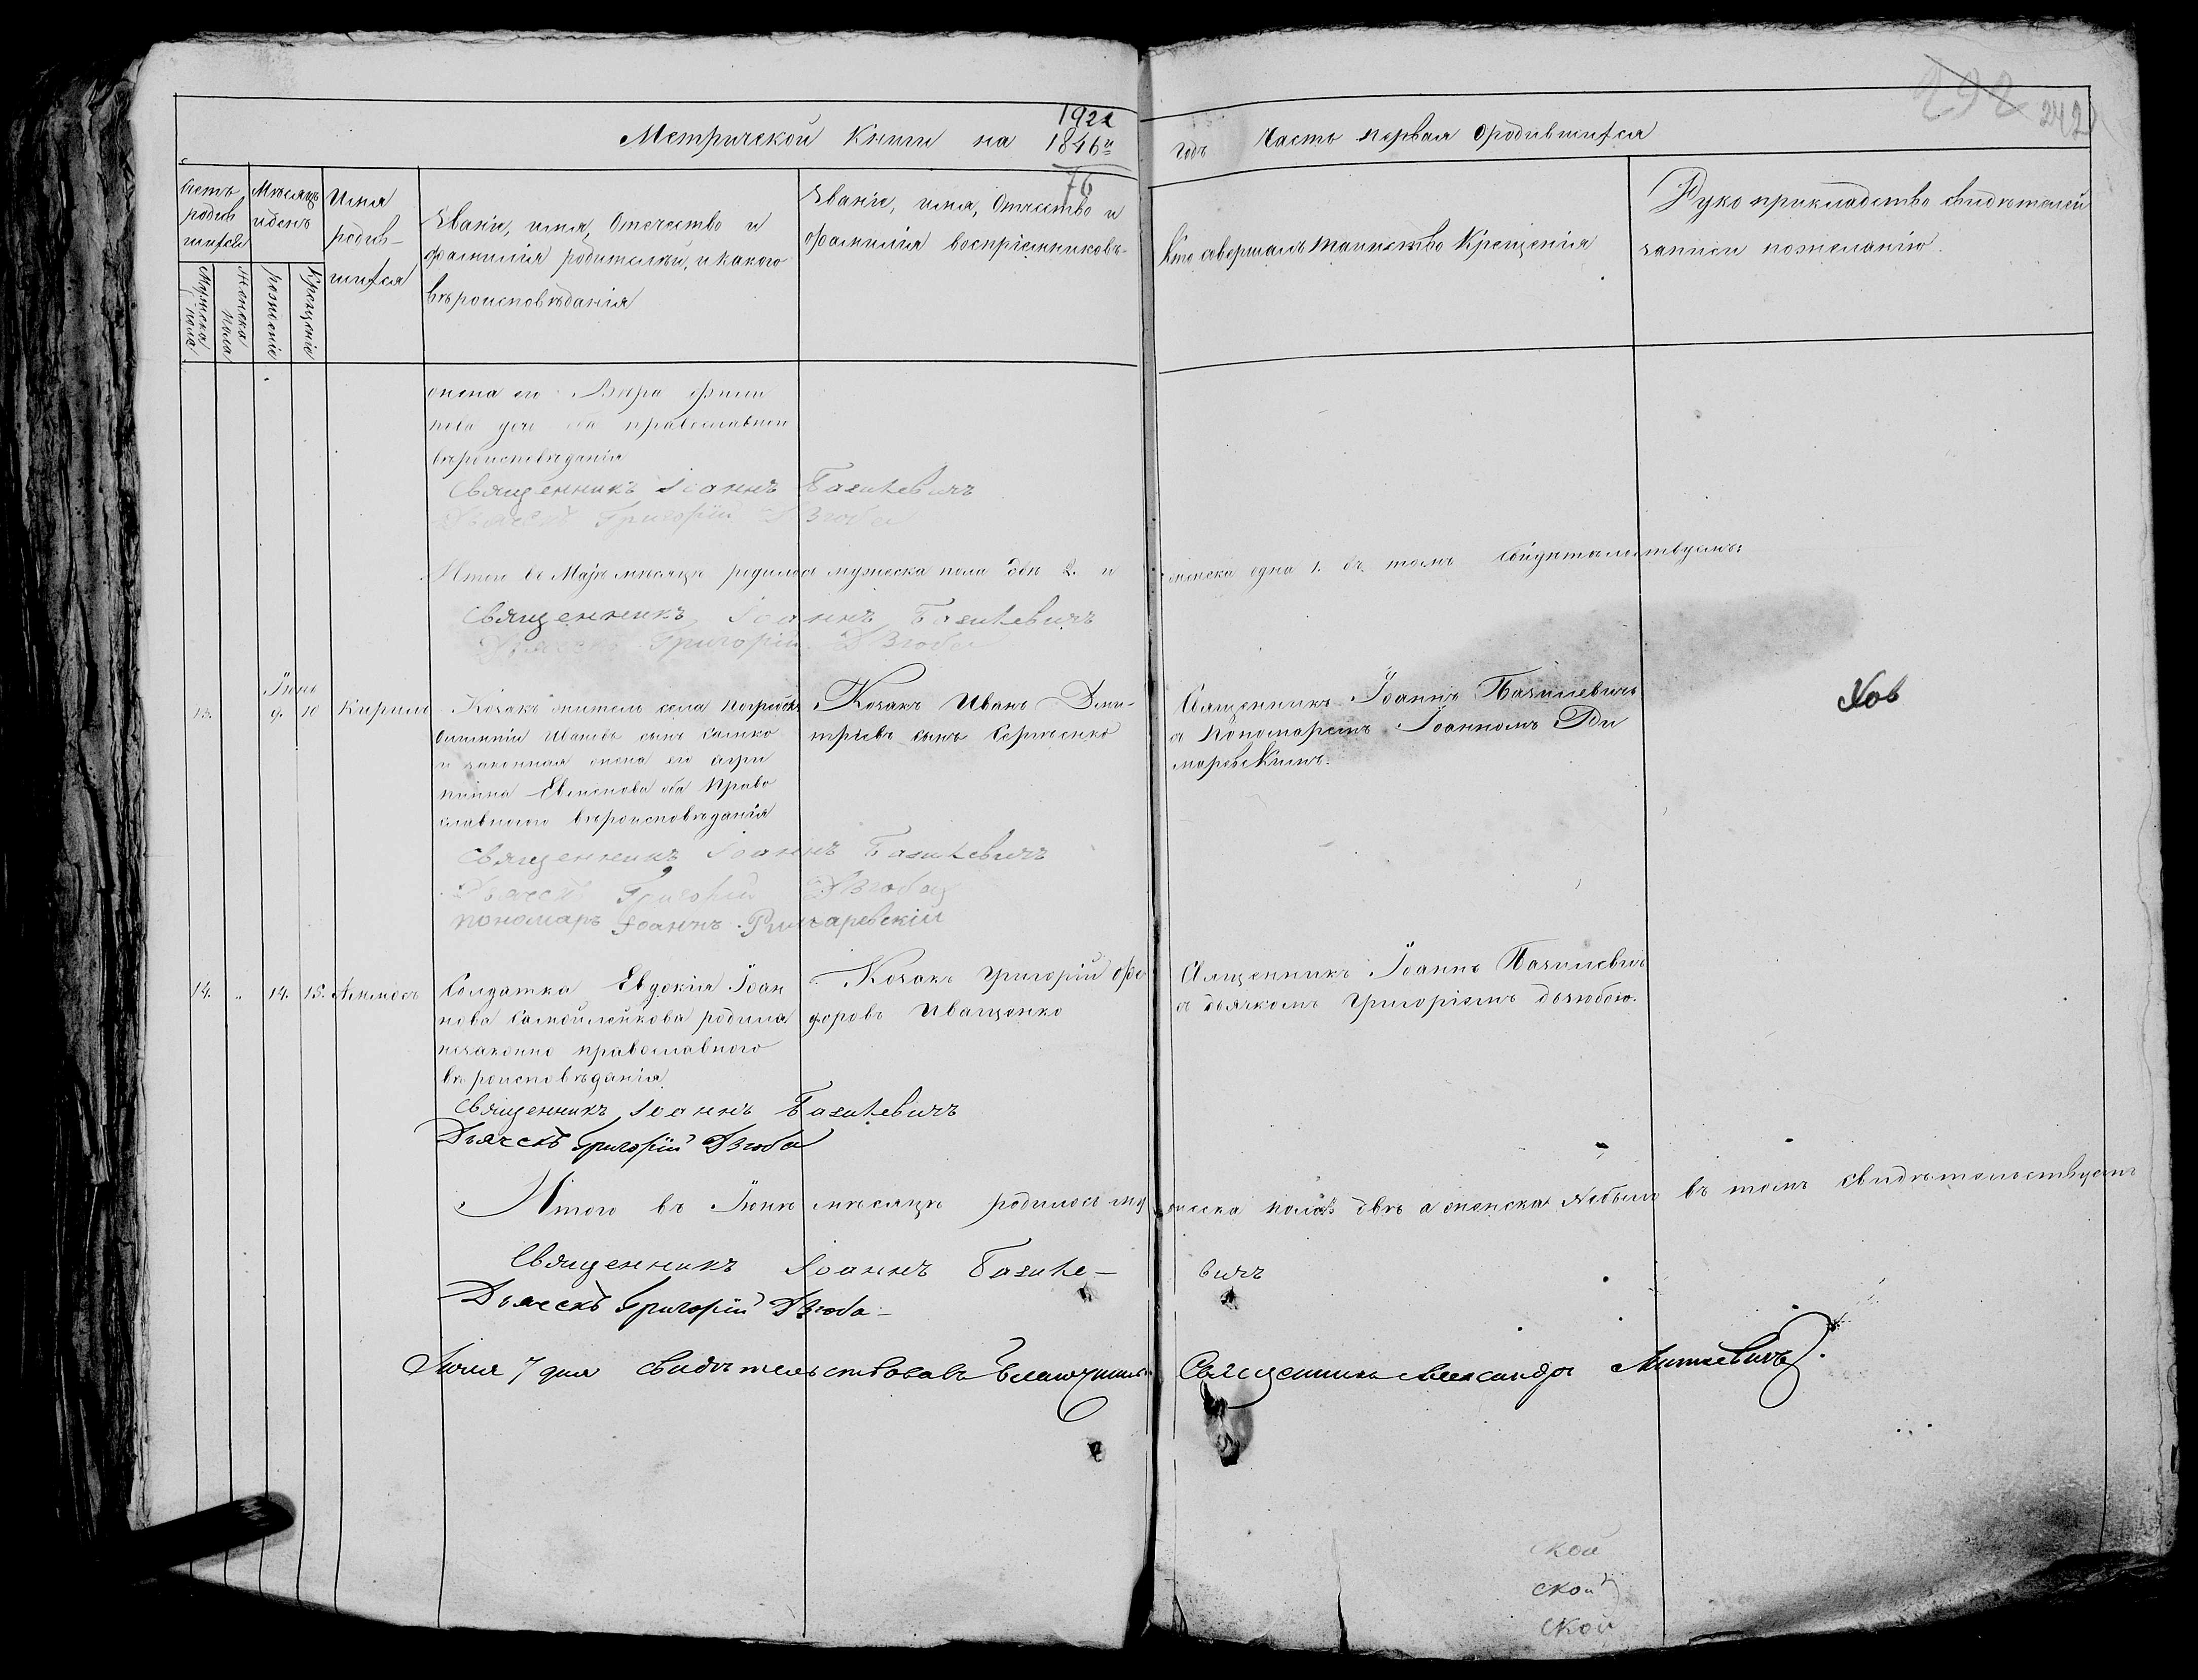 292 242
1922
Метрической Книги на 1846й годъ Часть первая Ородившихся
76
Счетъ родившихся
Мѣсяцъ и день
Имя родив-
шихся
Званіе, имя, Отечество и
фамилія родителей, и какого
вѣроисповѣданія
Званіе, имя, Отчество и
фамилія воспріемниковъ
Кто совершалъ таинство Крещенія
Рукоприкладство свидѣтелей
записи пожеланію.
Мужеска пола
Женска пола
рожденіе
Крещеніе
жена его
православнаго
вѣроисповѣданія
Священникъ Іоаннъ Базилевичъ
Дьячекъ Григорій Дзюба
Итого въ Маѣ мѣсяцѣ родилось мужеска пола два 2. и женска одна 1. въ томъ свидѣтельствуемъ:
Священникъ Іоаннъ Базилевичъ
Дьячекъ Григорій Дзюба
Іюнь
13. 9. 10 Кирилъ
Козакъ житель села
Ивановъ сынъ
и законная жена его Агри
пина оба Право
славнаго вѣроисповѣданія
Козакъ Иванъ Дми-
тріевъ сынъ Сергіенко
Священникъ Іоаннъ Базилевичъ
съ Пономаремъ Іоанномъ Ри
маревскимъ.
Хов
Священникъ Іоаннъ Базилевичъ
Дьячекъ Григорій Дзюба
пономарь Іоаннъ Римаревскій
14. „ 14. 15.
Солдатка Евдокія Іоан
нова Самойленкова родила
незаконно православнаго
вѣроисповѣданія
Козакъ Григорій Фе
доровъ Иващенко
Священникъ Іоаннъ Базилевичъ
съ дьячкомъ Григоріемъ дзюбою.
Священникъ Іоаннъ Базилевичъ
Дьячекъ Григорій Дзюба
Итого въ Іюнѣ мѣсяцѣ родилось мужеска пола два а женска небыло въ томъ свидѣтельствуемъ
Священникъ Іоаннъ Базиле-
вичъ
Дьячекъ Григорій Дзюба-
Іюля 7 дня свидѣтельствовалъ Благочинный Священникъ Александръ
ской
ской
ской